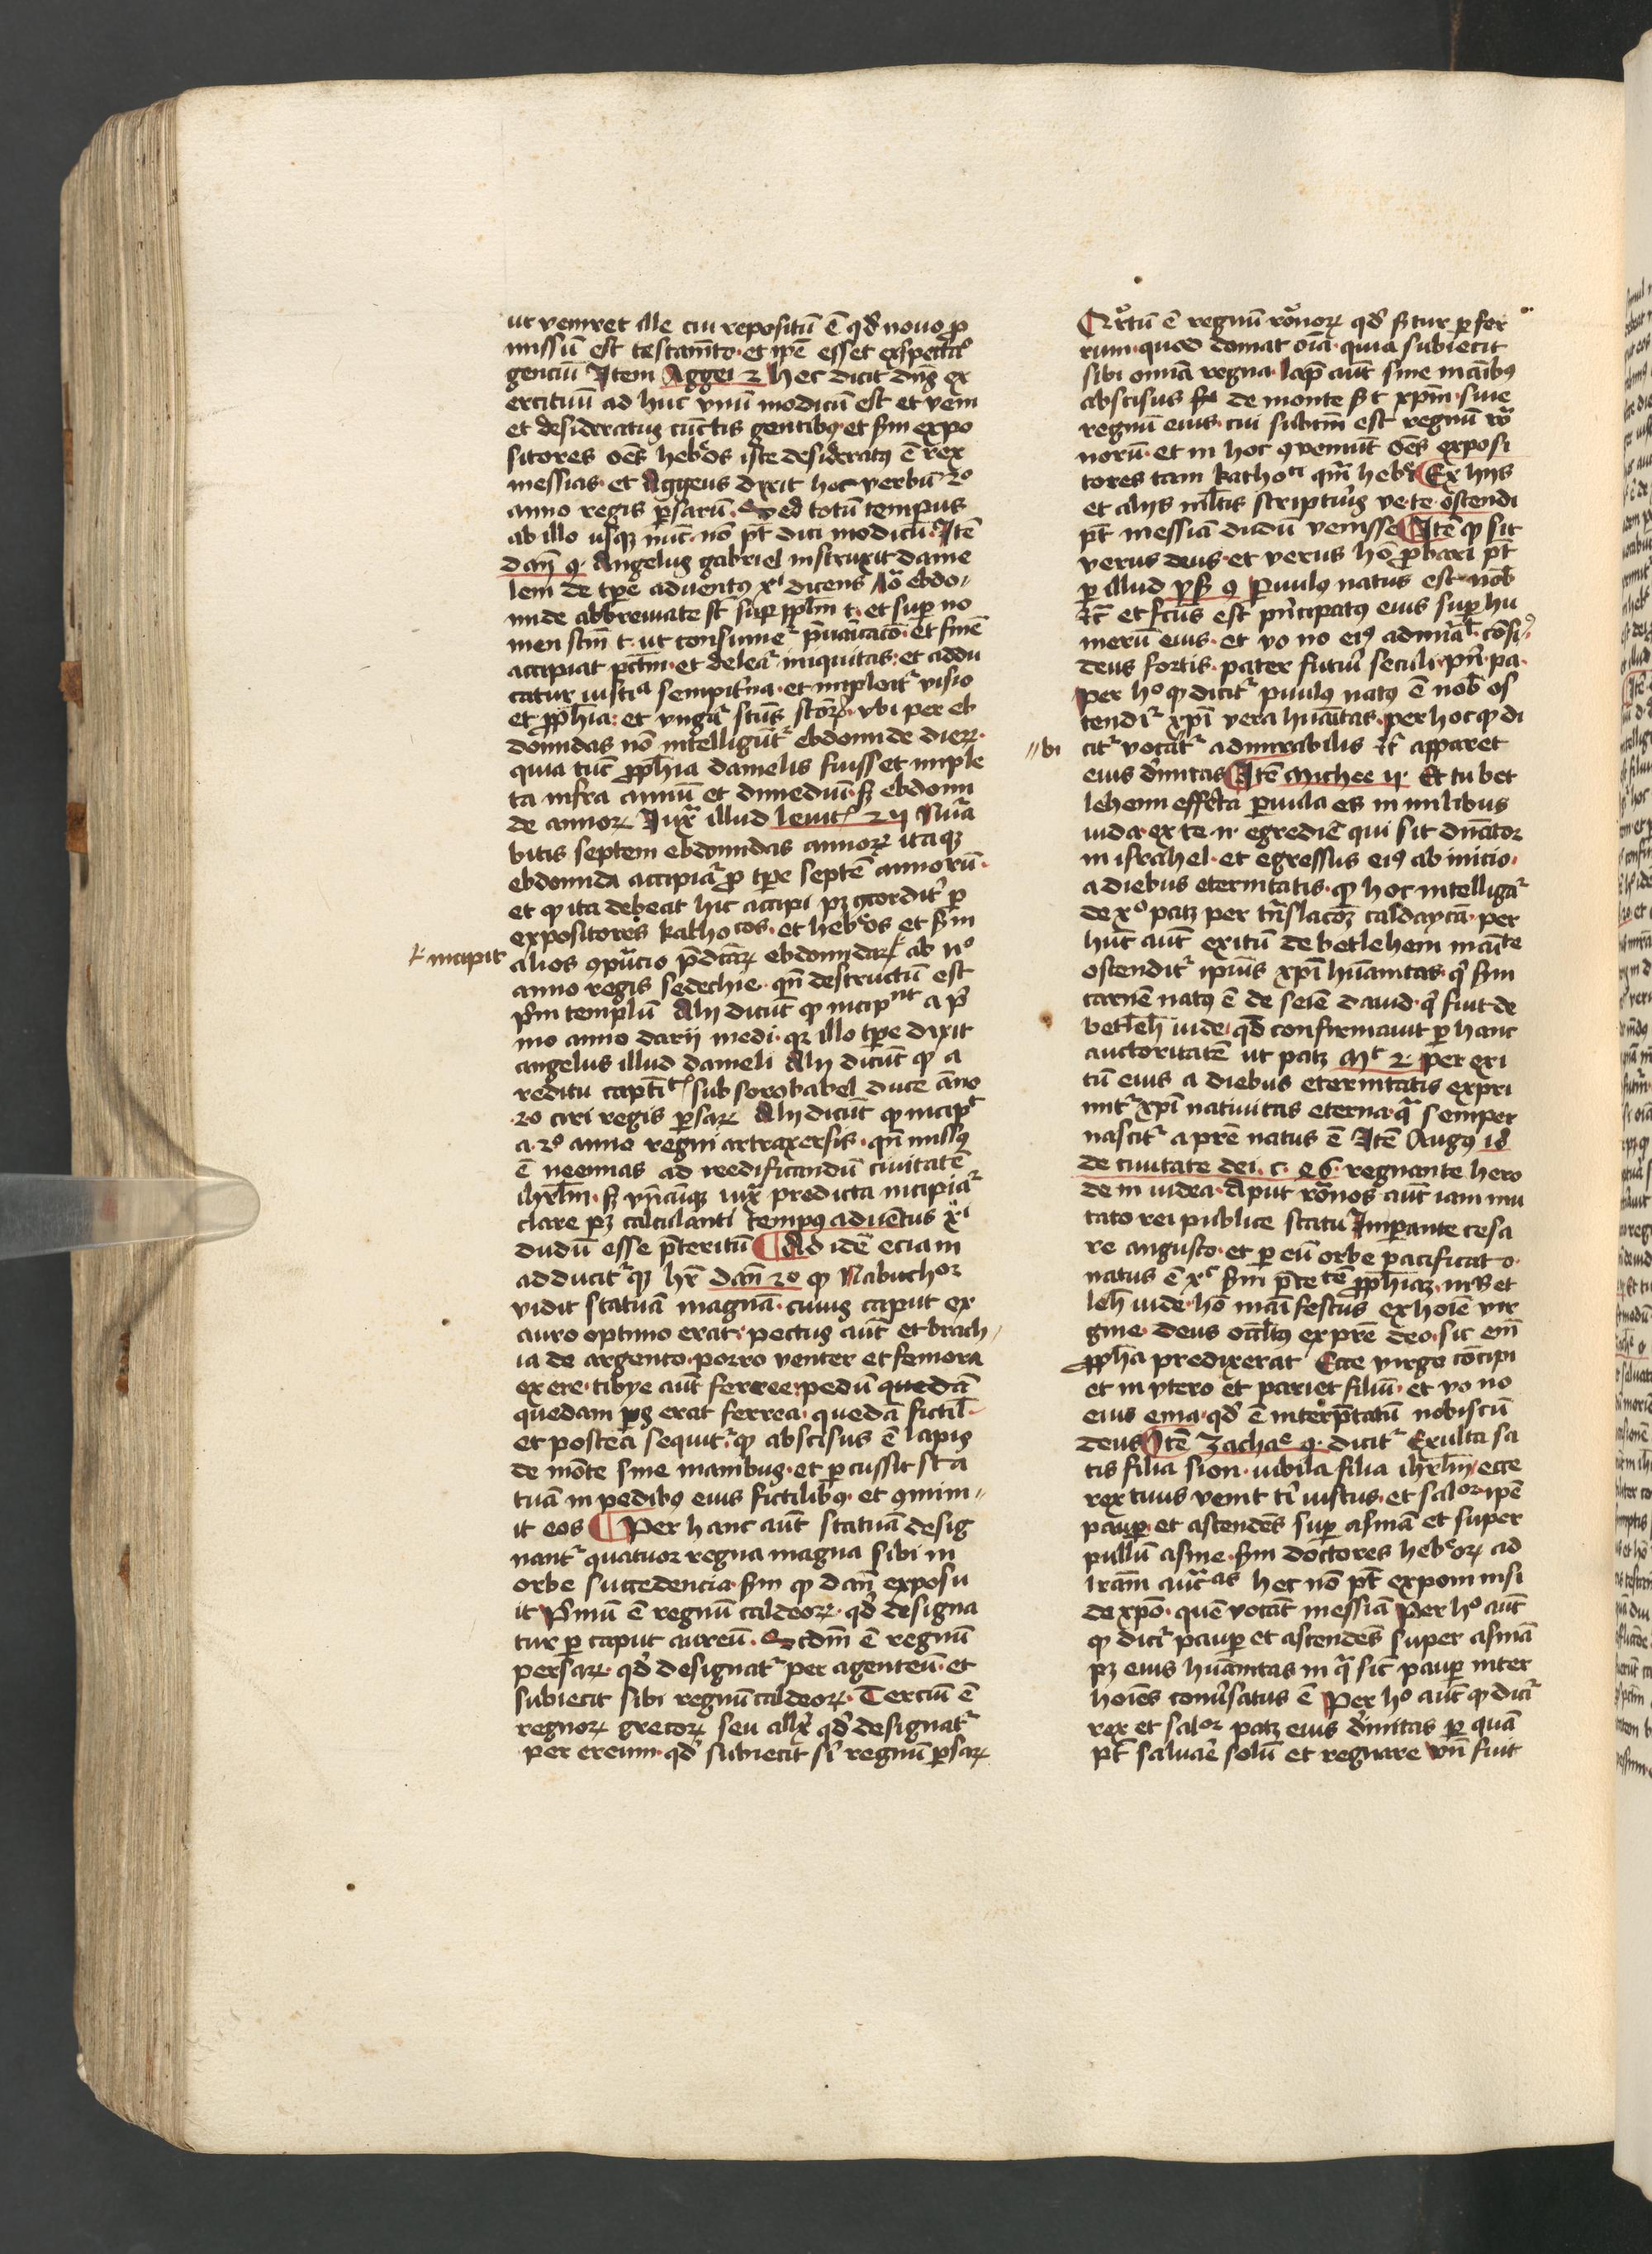 ut veniret ille cui repositū ē qd' novo ꝓ
missū est testam̄to · et ip̄e esset exspectac͛o
genciū Item Aggei 2 hec dicit dn̄s ex
ercituū ad huc vnū modicū est et veni
et desideratus cūctis gentibꝰ · et sm̄ expo
sitores oēs hebr̓os iste desideratꝰ ē rex
messias · et Aggeus dixit hoc verbū 2º
anno regis ꝑsarū · Sed totū tempus
ab illo usqꝫ nūc · nō pt̄ dici modicū · Itē
dan̄ 9 · Angelus gabriel instruxit danie
lem de tp̄e adventꝰ xi dicens lxa ebdo/
mide abbreviate st̄ sup̱ ppl̄m t · et sup̱ no
men scm̄ t · ut consumet᷑ p̄varicac̄o · et finē
accipiat pctm̄ · et deleat᷑ iniquitas · et addu
catur iusticia sempit̓na · et impleat᷑ visio
et ꝓph̄ia · et vngat᷑ sctūs sctōꝝ · vbi per eb
domidas nō intelligūt᷑ ebdomide dieꝝ ·
quia tūc ꝓph̄ia danielis fuisset imple
ta infra annū et dimediū · sꝫ ebdomi
de annoꝝ Iuxᵃ illud levitᶜ 25 Nūa
bitis septem ebdomidas annoꝝ itaqꝫ
ebdomida accipiat᷑ ꝓ tp̄e septē annorū ·
et qꝫ ita debeat hic accipi pꝫ ꝯcordit᷑ ꝑ
expositores kathocos · et hebr̓os et sm̄
alios ꝯputacio p̄dctāꝝ ebdomidaꝝ ab iiº
⊦ incipit
anno regis sedechie · qn̄ destructū est
pͥm templū Alij dicūt qꝫ incipnt a pͥ
mo anno darii medi · qꝫ illo tp̄e dixit
angelus illud danieli Alij dicūt qꝫ a
reditu captītᶜ sub sorobabel duce āno
2º ciri regis ꝑsaꝝ Alij dicūt qꝫ incipt
a 2º anno regni artaxersis · qn̄ missꝰ
ē neemias ad reedificandū civitatē
ihrl̄m · sꝫ vn̄cūqꝫ iuxᵃ predicta incipiat᷑
clare pꝫ calculanti tempꝰ adventus xi
dudū esse p̄teritū ¶ Ad idē eciam
adducit᷑ qꝫ hr̄ dan̄ 2º qꝫ Nabuchor
vidit statuā magnā · cuius caput ex
auro optimo erat · pectus aūt et brach/
ia de argento · porro venter et femora
ex ere · tibye aūt ferree · pedū quedā
quedam ps erat ferrea · quedā fictil̄ ·
et postea sequit᷑ · qꝫ abscisus ē lapis
de mōte sine manibus · et ꝑcussit sta
tuā in pedibꝰ eius fictilibꝰ · et ꝯmin//
it eos ¶ Per hanc aūt statuā desig
nant᷑ quatuor regna magna sibi in
orbe succedencia · sm̄ qꝫ dan̄ exposu
it Pͥmū ē regnū caldeoꝝ · qd' designa
tur ꝑ caput aureū · Sedm̄ ē regnū
persaꝝ · qd' designat᷑ per agenteū · et
subiecit sibi regnū caldeoꝝ · Terciū ē
regnoꝝ grecoꝝ seu allxᵢ qd' designat᷑
per ereum · qd' subiecit sͥ regnū ꝑsaꝝ
Qrtū ē regnū rōnoꝝ qd' sͥtur ꝑ fer
rum · quod domat oīa · quia subiecit
sibi omīa regna · lap̄ aūt sine manibꝰ
abscisus de monte st xpm̄ · sive
regnū eius · cui subiectm̄ est regnū ro
norū · et in hoc ꝯveniūt oēs exposi
tores tam kathoci qm̄ hebr̓i Ex hys
et alys ml̄tis scriptur̓is ve · te · ostendi
pt̄ messiā dudū venisse Itē qꝫ sit
verus deus · et verus hō ꝓbari pt̄
ꝑ illud ysͣ 9 Pvulꝰ natus est nob̄
Et fctūs est pͥncipatꝰ eius sup̱ hu
merū eius · et vo no eiꝰ admiral̄ · cōsi ·
deus fortis · pater futuri seculi · pͥn · pa ·
per hº qꝫ dicit᷑ pvulꝰ natꝰ ē nob̄ os
tendit᷑ xpī vera huānitas · per hoc qꝫ di
cit᷑ vocat᷑ admirabilis Et apparet
//bi
eius d'initas Itē Michee 5 · Et tu bet
lehem effr̄ta ꝑvula es in milibus
iuda · ex te · n · egrediet᷑ qui sit dn̄ator
in israhel · et egressus eiꝰ ab inicio ·
a diebus eternitatis · qꝫ hoc intelligat᷑
de xº patꝫ per tn̄slacōꝫ caldaycā · per
hūc aūt exitū de betlehem manīte
ostendit᷑ ipiūs xpī huānitas · q' sm̄
carnē natꝰ ē de semīe david · q' fuit de
betleh̄ iude qd' confirmavit ꝑ hanc
auctoritatē ut patꝫ Mt 2 · per exi
tū eius a diebus eternitatis expri
mit᷑ xpī nativitas eterna · qᵃ semper
nascit᷑ a pr̄e natus ē Itē Augꝰ 18
de civitate dei · c · 46 · regnante hero
de in iudea · Aput rōnos aūt iam mu
tato rei publice statu Imꝑante cesa
re augusto · et ꝑ eū orbe pacificato ·
natus ē xc sm̄ p̄cetē ꝓph̄iaꝫ · in Bet
leh̄ iude · hō mani festus ex hoīe vir
gine · deus occltꝰ ex pr̄e deo · sic em̄
ꝓph̄a predixerat Ecce virgo cōcipi
et in vtero et pariet filiū · et vo no
eius ema · qd' ē interp̄tatū nobiscū
deus Itē Zachae 9 · dicit᷑ Exulta sa
tis filia sion · iubila filia ihrl̄m / ecce
rex tuus venit tͥ iustus · et salor · ip̄e
paup̱ · et ascendēs sup̱ asinā et super
pullū asine · sm̄ doctores hebr̓oꝝ ad
lr̄am aucᵗas hec nō pt̄ exponi nisi
de xpō · quē vocāt messiā Per hº aūt
qꝫ dicit᷑ paup̱ et ascendēs super asinā
pꝫ eius huānitas in qᵃ sic paup̱ inter
hoīes conv̓satus ē Per hº aūt qꝫ dicit᷑
rex et salor patꝫ eius d'initas ꝑ quā
pt̄ salvar̄e solū et regnare Vn̄ fuit